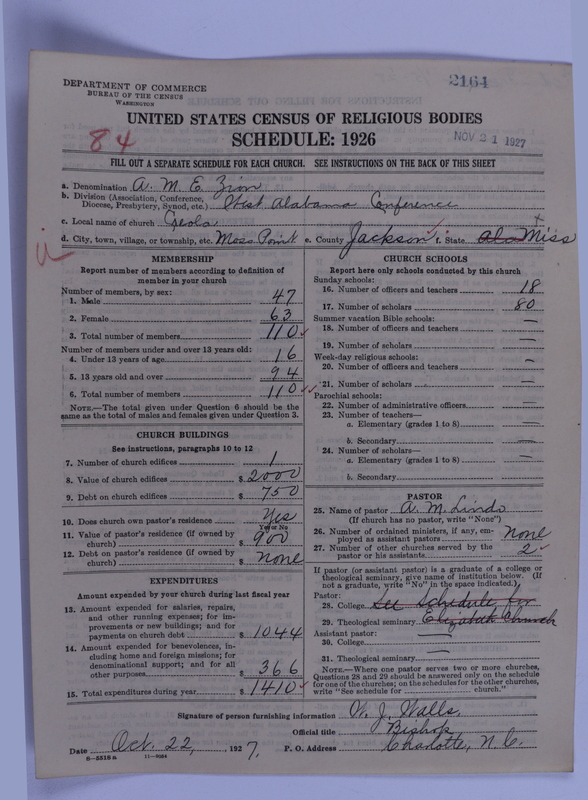 2164
DEPARTMENT OF COMMERCE
BUREAU OF THE CENSUS
WASHINGTON
UNITED STATES CENSUS OF RELIGIOUS BODIES
SCHEDULE: 1926
NOV 21 1927
84
FILL OUT A SEPARATE SCHEDULE FOR EACH CHURCH. SEE INSTRUCTIONS ON THE BACK OF THIS SHEET
a. Denomination A. M. E. Zion
b. Division (Association, Conference, Diocese, Presbytery, Synod, etc.) West Alabama Conference
c. Local name of church Geola
d. City, town, village, or township, etc. Moss Point e. County Jackson f. State Ala Miss
MEMBERSHIP
Report number of members according to definition of
member in your church
Number of members, by sex:
1. Male 47
2. Female 63
3. Total number of members 110
Number of members under and over 13 years old:
4. Under 13 years of age 16
5. 13 years old and over 94
6. Total number of members 110
NOTE.—The total given under Question 6 should be the
same as the total of males and females given under Question 3.
CHURCH BUILDINGS
See instructions, paragraphs 10 to 12
7. Number of church edifices 1
8. Value of church edifices $ 2000
9. Debt on church edifices $ 750
10. Does church own pastor's residence Yes
Yes or No
11. Value of pastor's residence (if owned by
church) $ 900
12. Debt on pastor's residence (if owned by
church) $ None
EXPENDITURES
Amount expended by your church during last fiscal year
13. Amount expended for salaries, repairs,
and other running expenses; for im-
provements or new buildings; and for
payments on church debt $ 1044
14. Amount expended for benevolences, in-
cluding home and foreign missions; for
denominational support; and for all
other purposes $ 366
15. Total expenditures during year $ 1410
CHURCH SCHOOLS
Report here only schools conducted by this church
Sunday schools:
16. Number of officers and teachers 18
17. Number of scholars 80
Summer vacation Bible schools:
18. Number of officers and teachers —
19. Number of scholars —
Week-day religious schools:
20. Number of officers and teachers —
21. Number of scholars —
Parochial schools:
22. Number of administrative officers —
23. Number of teachers—
a. Elementary (grades 1 to 8) —
b. Secondary —
24. Number of scholars—
a. Elementary (grades 1 to 8) —
b. Secondary —
PASTOR
25. Name of pastor A. M. Lindo
(If church has no pastor, write "None")
26. Number of ordained ministers, if any, em-
ployed as assistant pastors None
27. Number of other churches served by the
pastor or his assistants 2
If pastor (or assistant pastor) is a graduate of a college or
theological seminary, give name of institution below. (If
not a graduate, write "No" in the space indicated.)
Pastor:
28. College See schedule for
29. Theological seminary Elizabeth Church
Assistant pastor:
30. College —
31. Theological seminary —
NOTE.—Where one pastor serves two or more churches,
Questions 28 and 29 should be answered only on the schedule
for one of the churches; on the schedules for the other churches,
write "See schedule for church."
Signature of person furnishing information W. J. Walls
Official title Bishop
Date Oct. 22, 1927. P. O. Address Charlotte, N. C.
8-5518 a 11-9084